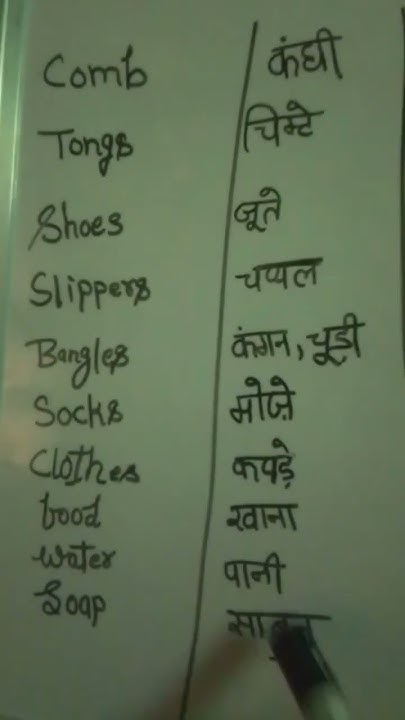 Comb कंघी
Tongs चिम्टे
Shoes जूते
Slippers चप्पल
Bangles कंगन, चूड़ी
Socks मोज़े
Clothes कपड़े
food खाना
water पानी
Soap